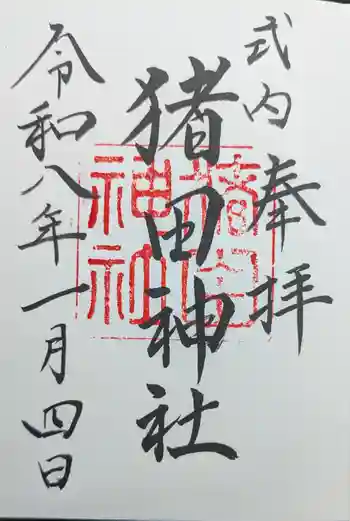 式内
奉拝
猪田神社
令和八年一月四日